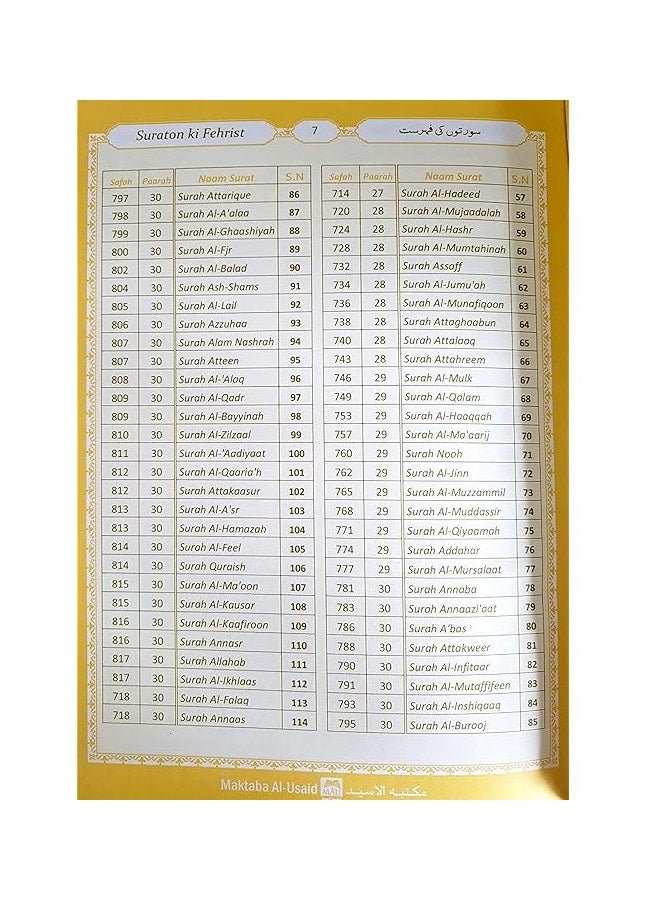 Suraton ki Fehrist 7 سورتوں کی فہرست
Safah Paarah Naam Surat S.N
714 27 Surah Al-Hadeed 57
720 28 Surah Al-Mujaadalah 58
724 28 Surah Al-Hashr 59
728 28 Surah Al-Mumtahinah 60
732 28 Surah Assaff 61
734 28 Surah Al-Jumu'ah 62
736 28 Surah Al-Munafiqoon 63
738 28 Surah Attaghaabun 64
740 28 Surah Attalaaq 65
743 28 Surah Attahreem 66
746 29 Surah Al-Mulk 67
749 29 Surah Al-Qalam 68
753 29 Surah Al-Haaqqah 69
757 29 Surah Al-Ma'aarij 70
760 29 Surah Nooh 71
762 29 Surah Al-Jinn 72
765 29 Surah Al-Muzzammil 73
768 29 Surah Al-Muddassir 74
771 29 Surah Al-Qiyaamah 75
774 29 Surah Addahar 76
777 29 Surah Al-Mursalaat 77
781 30 Surah Annaba 78
783 30 Surah Annaazi'aat 79
786 30 Surah A'bas 80
788 30 Surah Attakweer 81
790 30 Surah Al-Infitaar 82
791 30 Surah Al-Mutaffifeen 83
793 30 Surah Al-Inshiqaaq 84
795 30 Surah Al-Burooj 85
Safah Paarah Naam Surat S.N
797 30 Surah Attarique 86
798 30 Surah Al-A'alaa 87
799 30 Surah Al-Ghaashiyah 88
800 30 Surah Al-Fjr 89
802 30 Surah Al-Balad 90
804 30 Surah Ash-Shams 91
805 30 Surah Al-Lail 92
806 30 Surah Azzuhaa 93
807 30 Surah Alam Nashrah 94
807 30 Surah Atteen 95
808 30 Surah Al-'Alaq 96
809 30 Surah Al-Qadr 97
809 30 Surah Al-Bayyinah 98
810 30 Surah Al-Zilzaal 99
811 30 Surah Al-'Aadiyaat 100
812 30 Surah Al-Qaaria'h 101
812 30 Surah Attakaasur 102
813 30 Surah Al-A'sr 103
813 30 Surah Al-Hamazah 104
814 30 Surah Al-Feel 105
814 30 Surah Quraish 106
815 30 Surah Al-Ma'oon 107
815 30 Surah Al-Kausar 108
816 30 Surah Al-Kaafiroon 109
816 30 Surah Annasr 110
817 30 Surah Allahab 111
817 30 Surah Al-Ikhlaas 112
718 30 Surah Al-Falaq 113
718 30 Surah Annaas 114
Maktaba Al-Usaid MAU مکتبہ الاسید